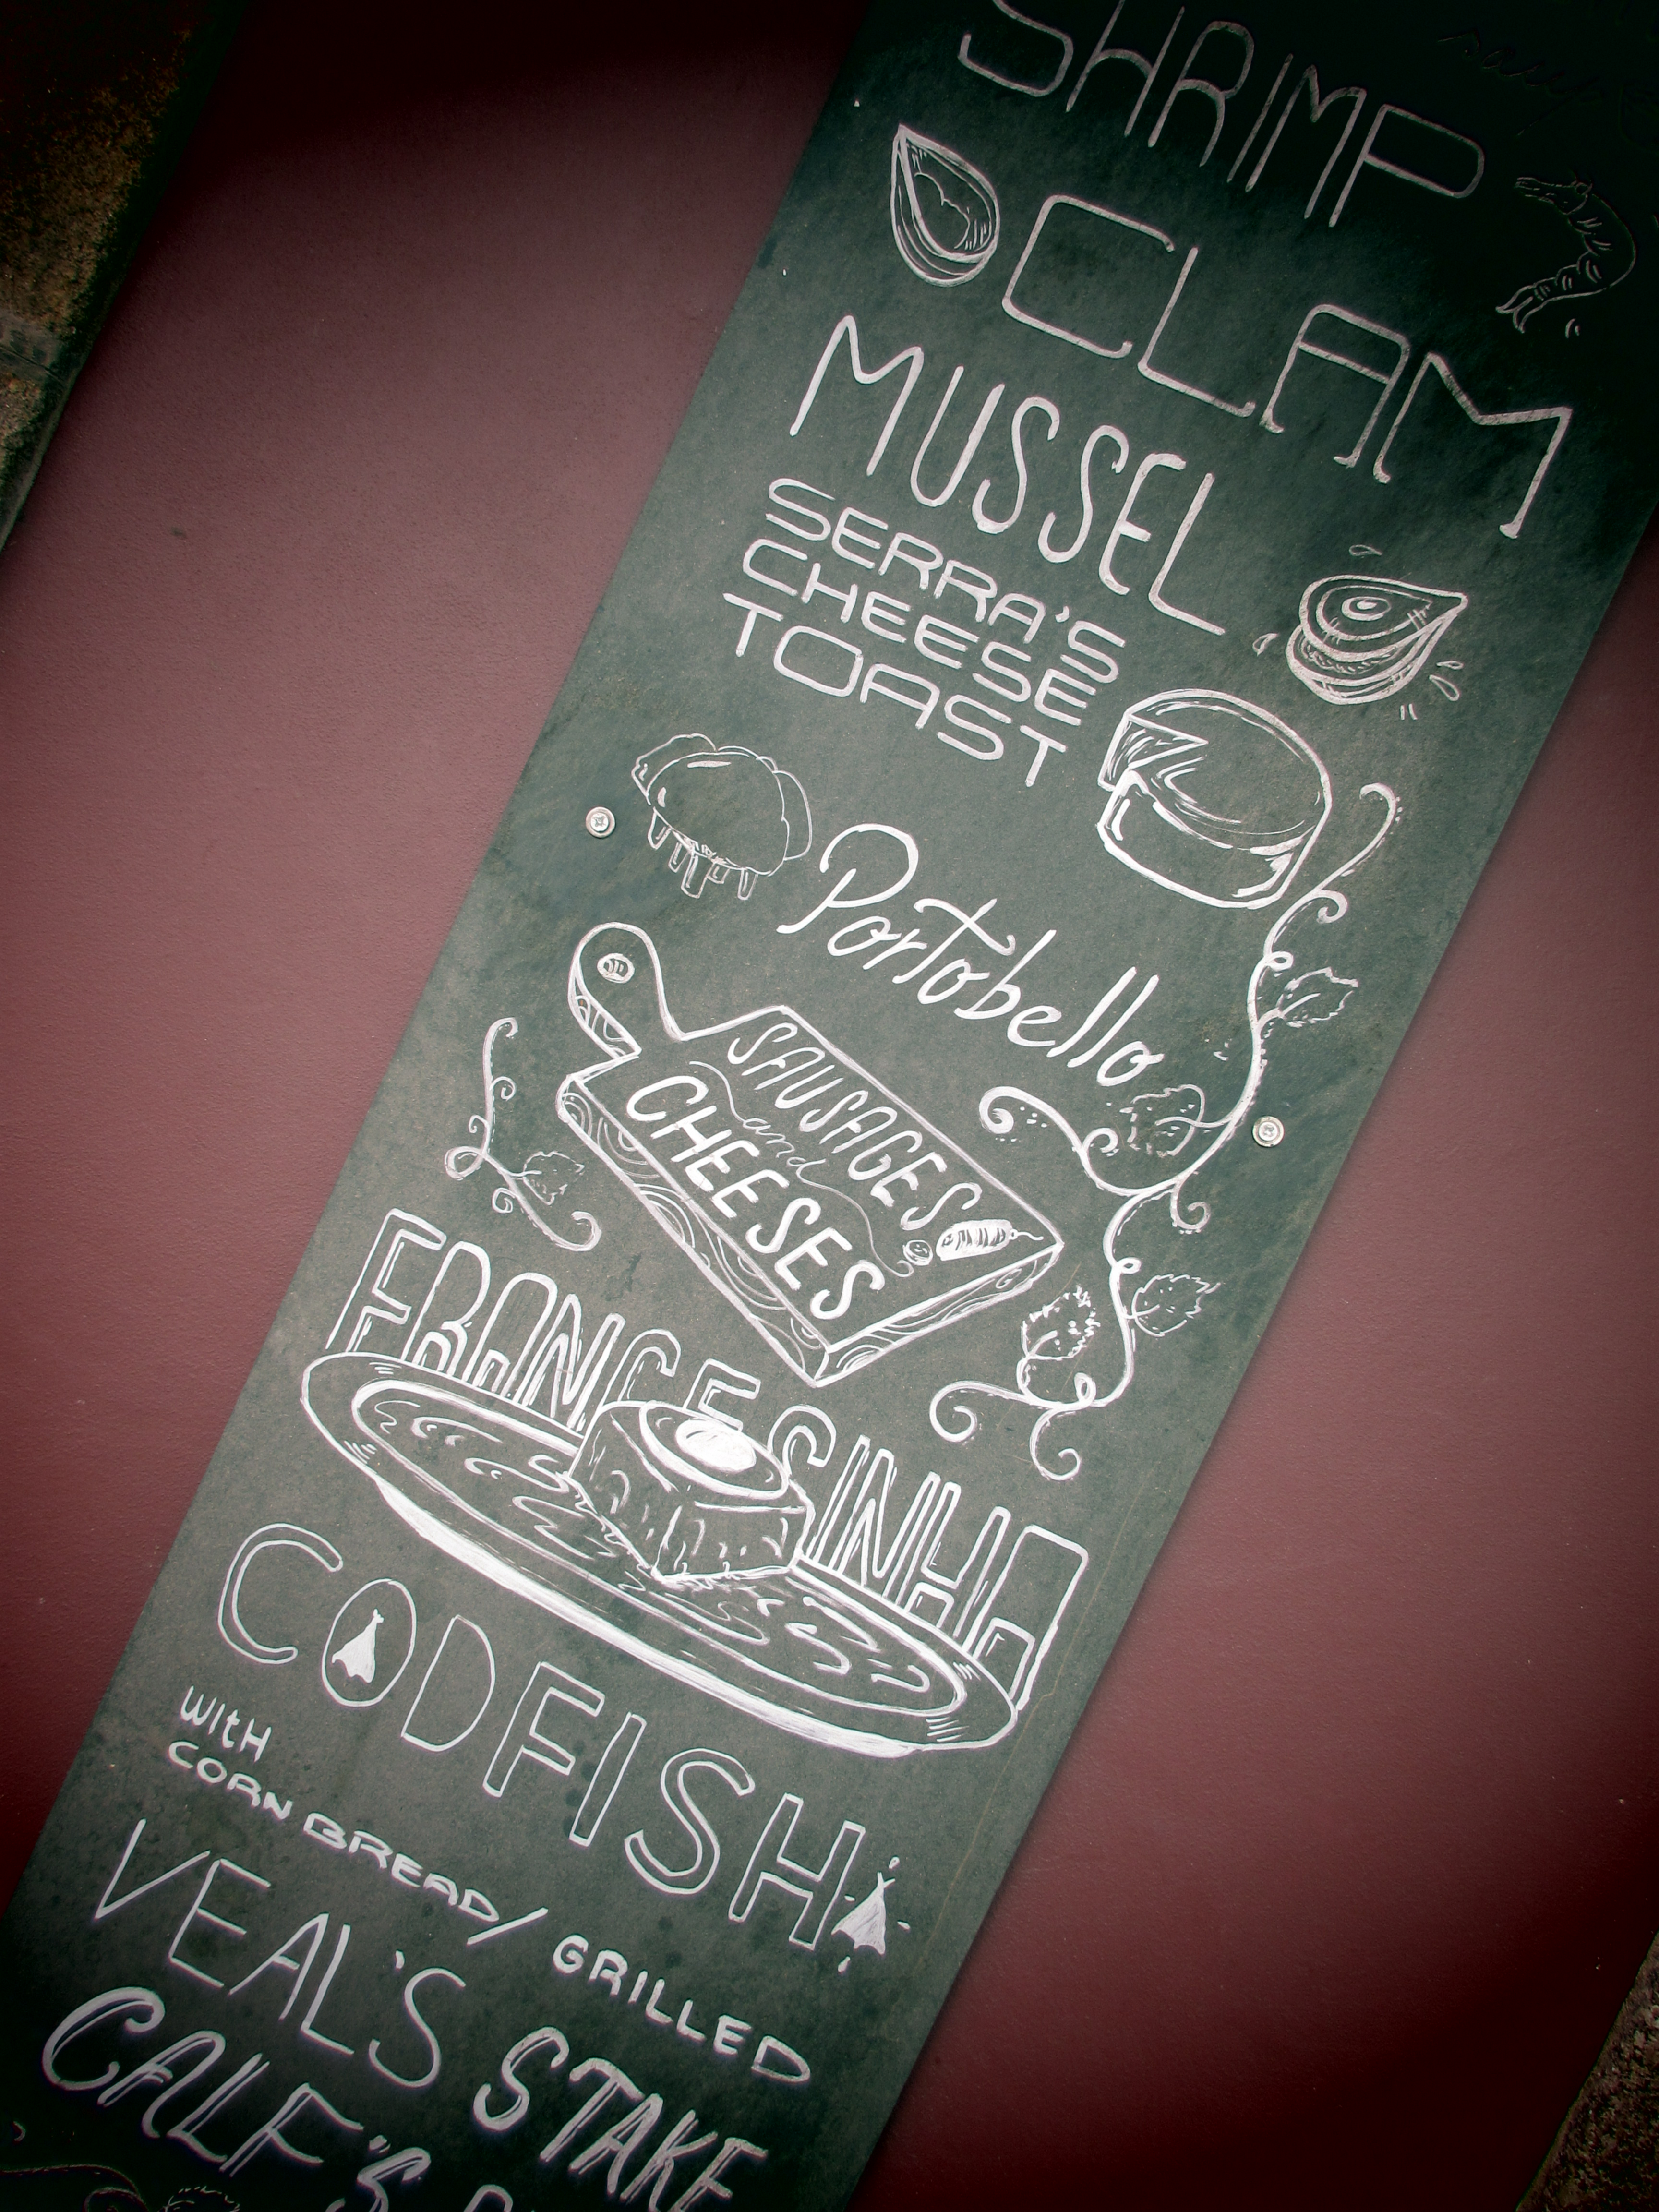 SHRIMP
CLAM
MUSSEL
SERRA'S
CHEESE
TOAST
Portobello
SAUSAGES
and
CHEESES
FRANCESINHA
CODFISH
WITH
CORN BREAD / GRILLED
VEAL'S STAKE
CALF'S